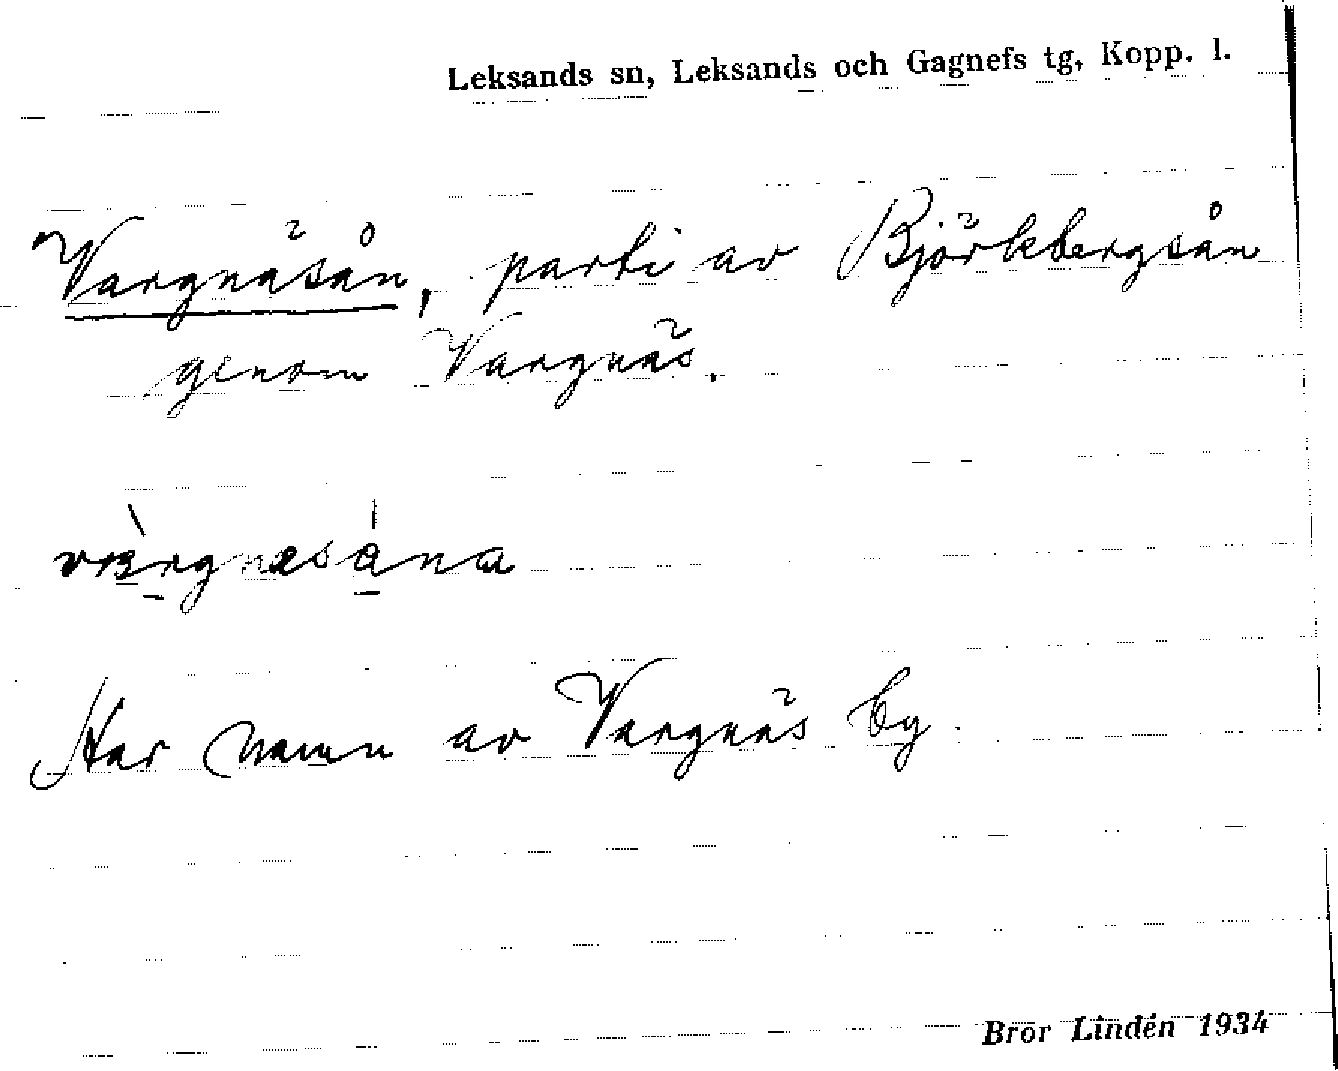 Leksands sn, Leksands och Gagnefs tg, Kopp. l.
Vargnäsån, parti av Björkbergsån
genom Vargnäs.
Har namn av Vargnäs by.
Bror Lindén 1934